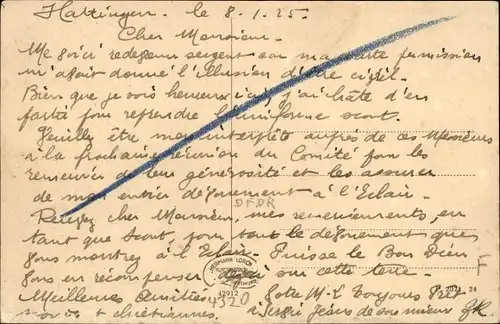 Hattingen. le 8.1.25.
Cher Monsieur.
Me voici redevenu sergent car ma courte permission
m'avait donné l'illusion d'être civil.
Bien que je sois heureux ici, j'ai hâte d'en
partir pour reprendre l'uniforme scout.
Veuillez être mon interprète auprès de ces Messieurs
à la prochaine réunion du Comité pour les
remercier de leur générosité et les assurer
de mon entier dévouement à l'Eclair.
Recevez cher Monsieur, mes remerciements en
tant que Scout, pour tout le dévouement que
vous montrez à l'Eclair. Puisse le Bon Dieu
vous en récompenser déjà sur cette terre.
Meilleures Amitiés
et chrétiennes.
Votre M.L. Toujours Prêt
à Servir
de son mieux
DFDR
HERMANN LORCH
DORTMUND
12912
4320
F
2021. 24